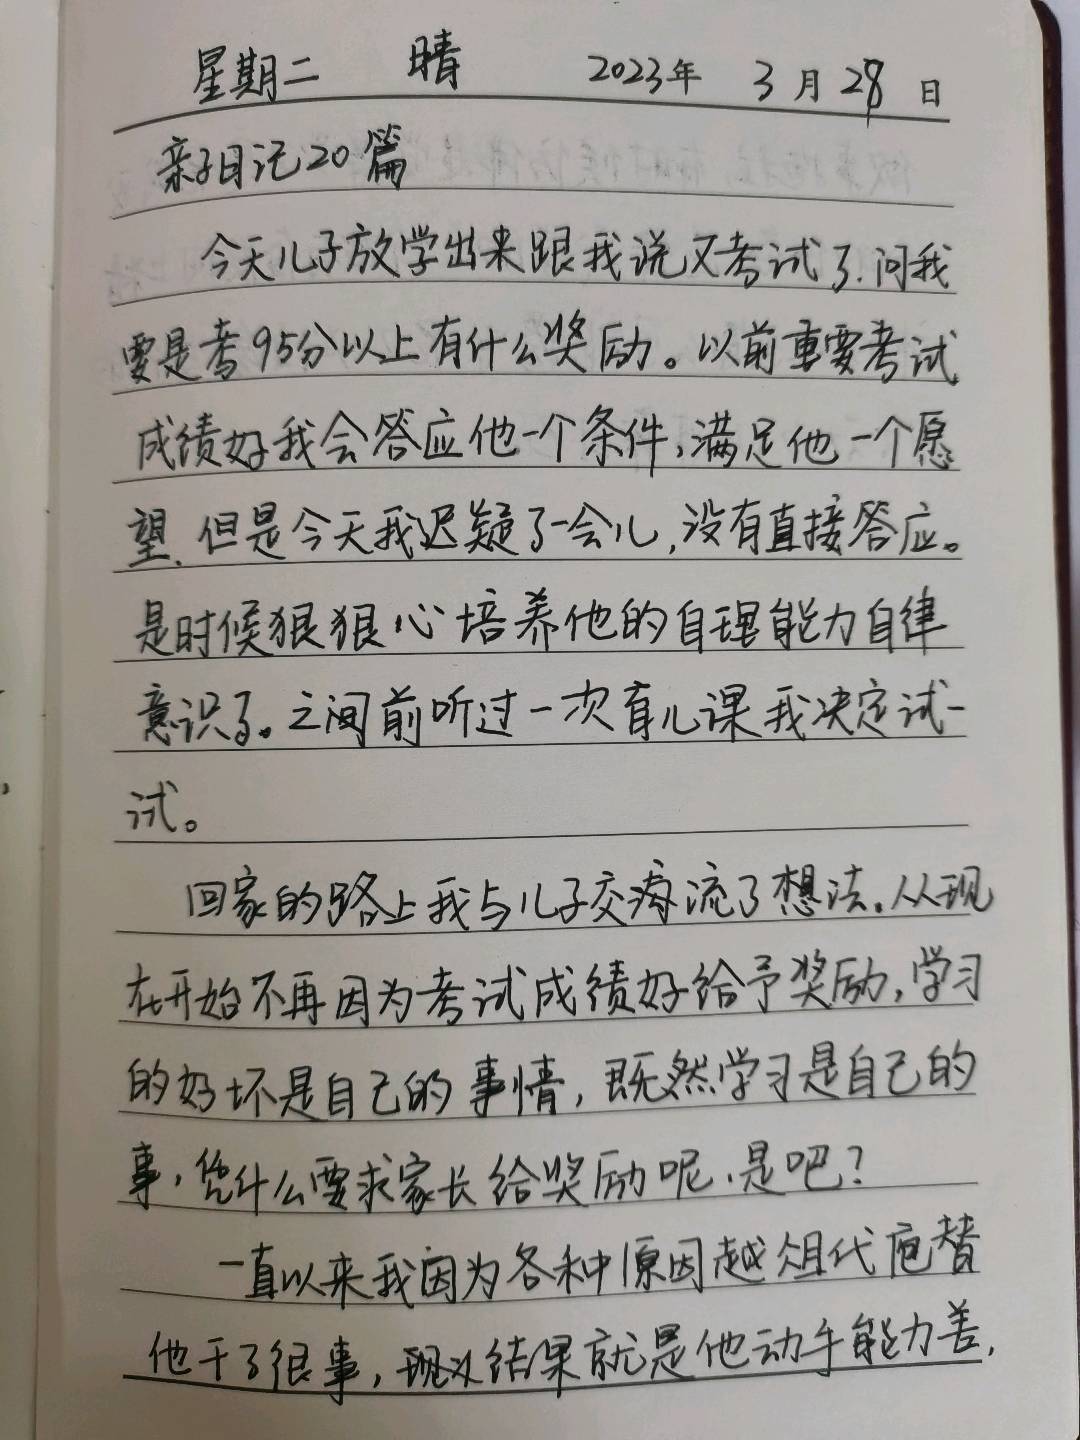 星期二 晴 2023年 3月28日
亲子日记20篇
今天儿子放学出来跟我说又考试了.问我
要是考95分以上有什么奖励。以前重要考试
成绩好我会答应他一个条件,满足他一个愿
望.但是今天我迟疑了一会儿,没有直接答应。
是时候狠狠心培养他的自理能力自律
意识了。之间前听过一次育儿课我决定试一
试。
回家的路上我与儿子交流了想法。从现
在开始不再因为考试成绩好给予奖励,学习
的好坏是自己的事情,既然学习是自己的
事,凭什么要求家长给奖励呢.是吧?
一直以来我因为各种原因越俎代庖替
他干了很事,现结果就是他动手能力差,